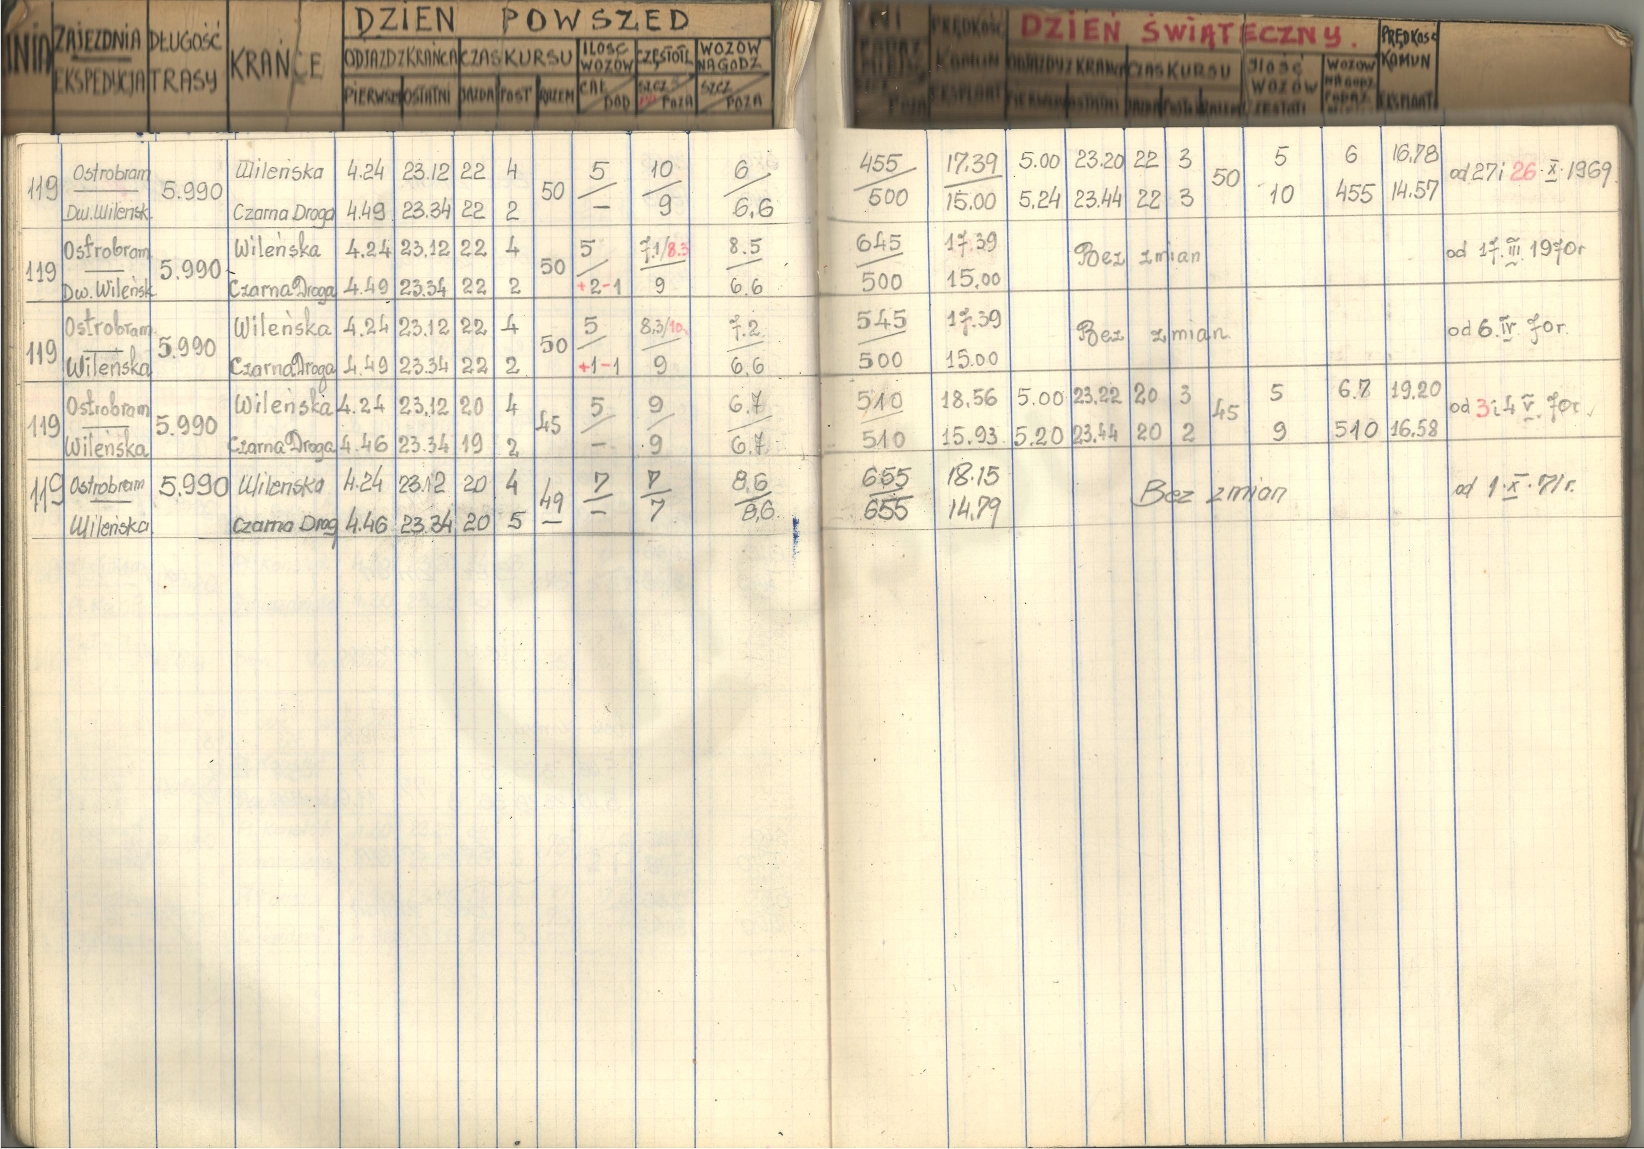 DZIEŃ POWSZED
ZAJEZDNIA DŁUGOŚĆ KRAŃCE ODJAZD Z KRAŃCA CZAS KURSU ILOŚĆ WOZÓW CZĘSTOTL WOZÓW NA GODZ
EKSPEDYCJA TRASY PIERWSZ OSTATNI JAZDA POST RAZEM CAŁ DOD SZCZ POZA SZCZ POZA
DZIEŃ ŚWIĄTECZNY.
PRĘDKOŚĆ KOMUN EKSPLOAT ODJAZDY Z KRAŃCA CZAS KURSU ILOŚĆ WOZÓW WOZÓW NA GODZ PRĘDKOŚĆ KOMUN EKSPLOAT
Ostrobram Wileńska 4.24 23.12 22 4 5 10 6 455 17.39 5.00 23.20 22 3 5 6 16,78
119 5.990 50 50 od 27 i 26.X.1969.
Dw. Wileńsk. Czarna Droga 4.49 23.34 22 2 — 9 6,6 500 15.00 5,24 23.44 22 3 10 455 14.57
Ostrobram Wileńska 4.24 23.12 22 4 5 7,1/8.3 8.5 645 17.39
119 5.990 50 Bez zmian od 17.III.1970r
Dw. Wileńsk Czarna Droga 4.49 23.34 22 2 +2-1 9 6.6 500 15,00
Ostrobram Wileńska 4.24 23.12 22 4 5 8,3/10 7.2 545 17.39
119 5.990 50 Bez zmian od 6.IV 70r.
Wileńska Czarna Droga 4.49 23.34 22 2 +1-1 9 6,6 500 15.00
Ostrobram Wileńska 4.24 23.12 20 4 5 9 6.7 510 18.56 5.00 23.22 20 3 5 6.7 19.20
119 5.990 45 45 od 3 i 4 V. 70r.
Wileńska Czarna Droga 4.46 23.34 19 2 — 9 6.7 510 15.93 5.20 23.44 20 2 9 510 16.58
Ostrobram Wileńska 4.24 23.12 20 4 7 7 8,6 655 18.15
119 5.990 49 Bez zmian od 1.X.71r.
Wileńska Czarna Drog 4.46 23.34 20 5 — 7 8,6 655 14.79